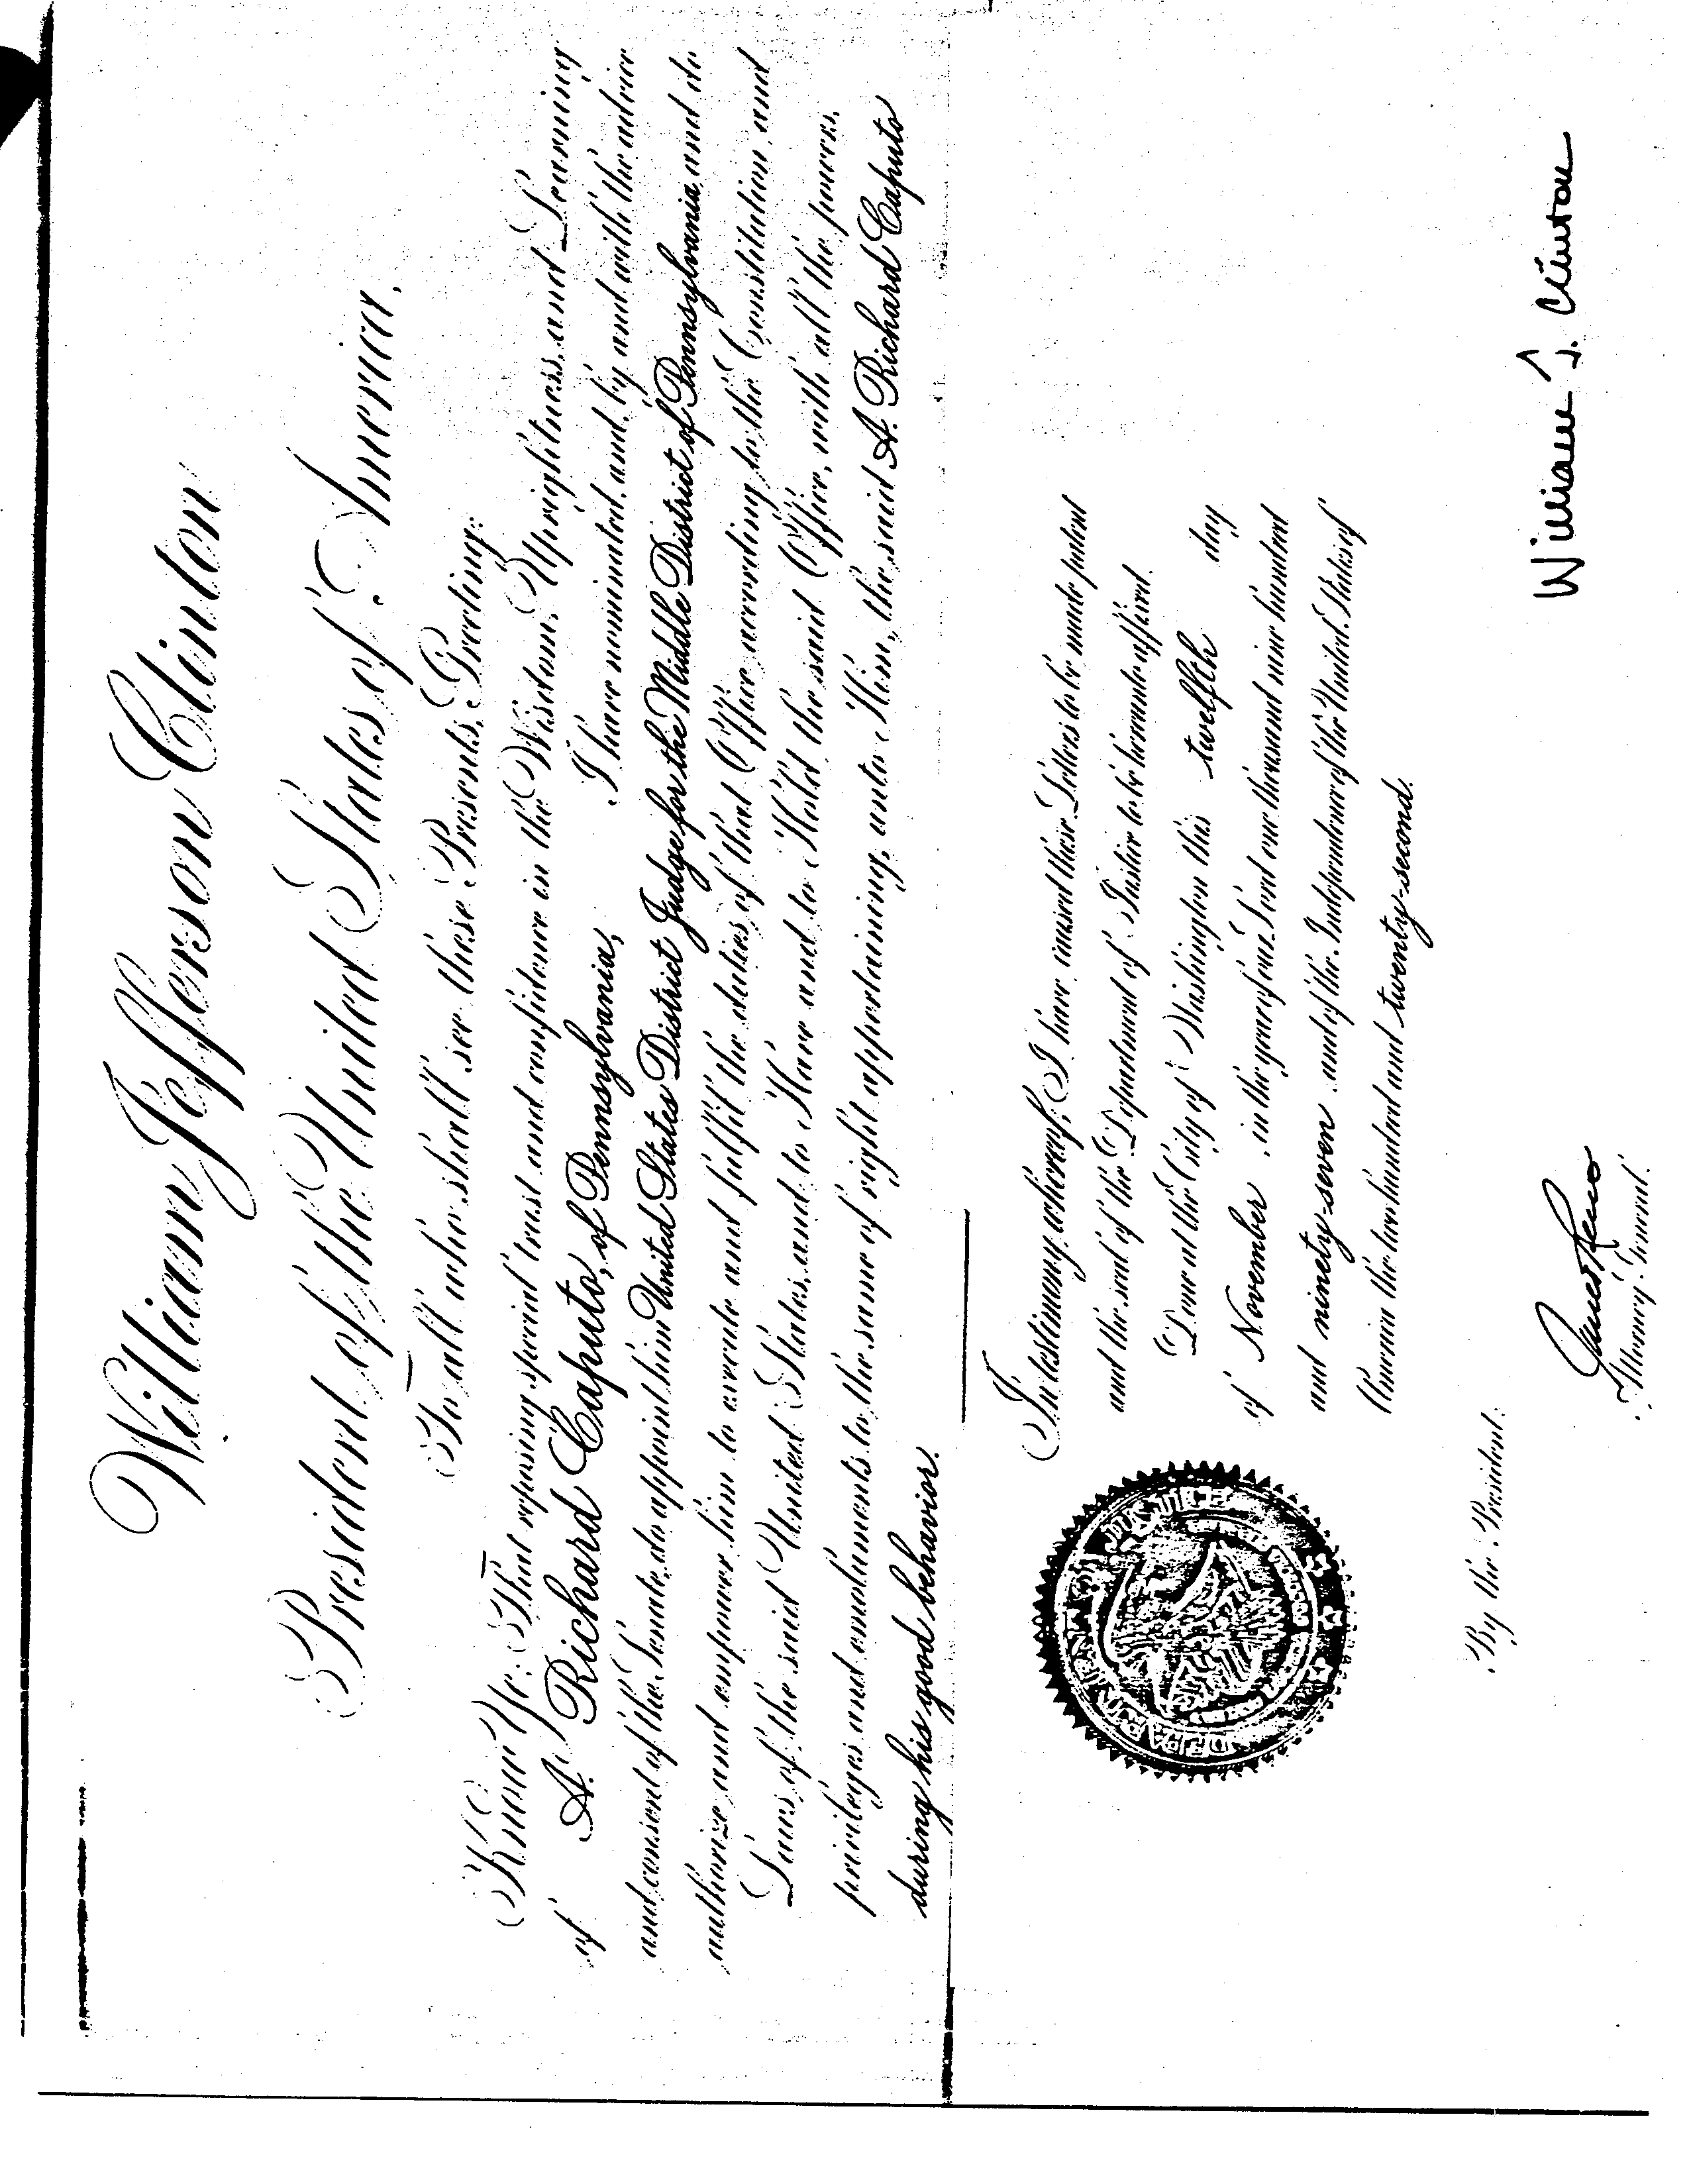 William Jefferson Clinton
President of the United States of America,
To all who shall see these Presents, Greeting:
Know Ye: That reposing special trust and confidence in the Wisdom, Uprightness, and Learning
of A. Richard Caputo, of Pennsylvania, I have nominated, and, by and with the advice
and consent of the Senate, do appoint him United States District Judge for the Middle District of Pennsylvania, and do
authorize and empower him to execute and fulfil the duties of that Office according to the Constitution and
Laws of the said United States, and to Have and to Hold the said Office, with all the powers,
privileges and emoluments to the same of right appertaining, unto Him, the said A. Richard Caputo
during his good behavior.
In testimony whereof, I have caused these Letters to be made patent
and the seal of the Department of Justice to be hereunto affixed.
Done at the City of Washington this twelfth day
of November, in the year of our Lord one thousand nine hundred
and ninety-seven and of the Independence of the United States of
America the two hundred and twenty-second.
DEPARTMENT OF JUSTICE
By the President:
William J. Clinton
Janet Reno
Attorney General.